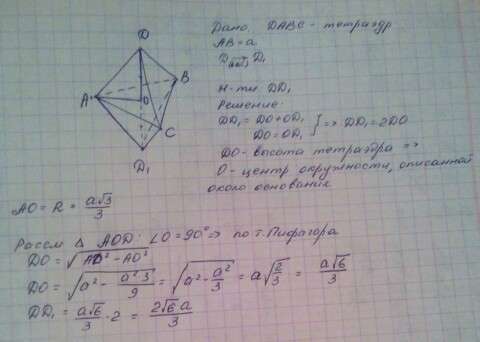 D
A
B
O
C
D₁
Дано: DABC - тетраэдр
AB = a
D D₁
Н-ти: DD₁
Решение:
DD₁ = DO + OD₁
DO = OD₁ } => DD₁ = 2DO
DO - высота тетраэдра =>
O - центр окружности, описанной
около основания
AO = R = a√3/3
Рассм Δ AOD: ∠O = 90° => по т. Пифагора
DO = √(AD² - AO²)
DO = √(a² - a²3/9) = √(a² - a²/3) = a√(2/3) = a√6/3
DD₁ = a√6/3 · 2 = 2√6a/3